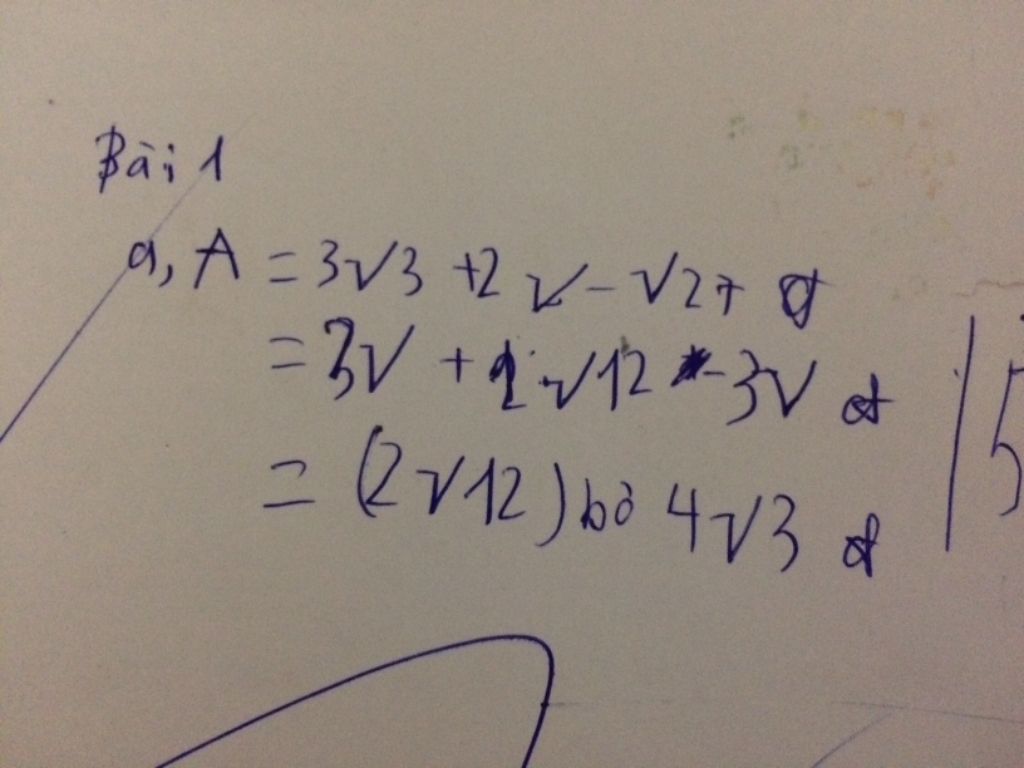 Bài 1
a, A = 3√3 +2 √ - √27
= 3√ + 2 √12 - 3√
= (2√12) bỏ 4√3
5